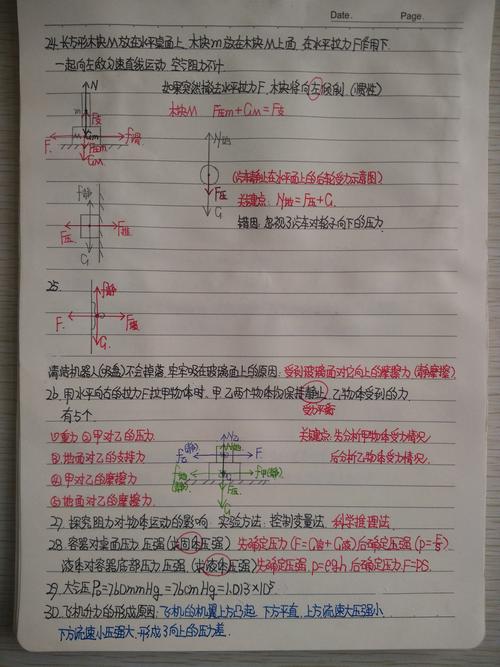 Date.          Page.
24. 长方形木块M放在水平桌面上,木块m放在木块M上面,在水平拉力F作用下
一起向左做匀速直线运动,空气阻力不计
如果突然撤去水平拉力F,木块将向左倾倒.(惯性)
木块M  F压m+GM=F支
N
m
F支
M
F.
f滑
F压m
GM
N地
F压
G
(汽车静止在水平面上的后轮受力示意图)
关键点: N地=F压+G.
错因:忽视了汽车对轮子向下的压力
f静
F压
F推
G
25.
f静
F.
G
清洁机器人(吸盘)不会掉落,牢牢吸在玻璃面上的原因:受到玻璃面对它向上的摩擦力(静摩擦)
26. 用水平向右的拉力F拉甲物体时.甲、乙两个物体均保持静止.乙物体受到的力
有5个.
受力平衡
①重力 ②甲对乙的压力
③地面对乙的支持力
④甲对乙的摩擦力
⑤地面对乙的摩擦力
关键点:先分析甲物体受力情况
后分析乙物体受力情况.
F.
F压
G
27. 探究阻力对物体运动的影响 实验方法:控制变量法,科学推理法.
28. 容器对桌面压力、压强(求固体压强)先确定压力(F=G容+G液)后确定压强(p=F/S)
液体对容器底部压力、压强(求液体压强)先确定压强p=ρgh后确定压力F=PS.
29. 大气压P₀=760mmHg=76cmHg=1.013×10⁵
30. 飞机升力的形成原因:飞机的机翼上方凸起.下方平直,上方流速大压强小
下方流速小压强大.形成了向上的压力差.